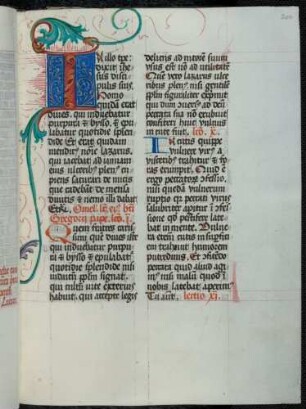 In illo tpe:
dixit ihe
sus disci
pulis suis
Homo
quida erat
diues. qui induebatur
purpura & bysso. & epu
labatur quotidie splen
dide Et erat quidam
mendicus noie lazarus.
qui iacebat ad ianuam
eius ulceribus plenus cu
piens saturari de micis
que cadebant de mensa
diuitis & nemo illi dabat
Gregorij pape. lec. i.
Quem fratres carissi
mi que diues iste
qui induebatur purpu
ra & bysso & epulabatur
quotidie splendide nisi
iudaicu pplm signat.
qui cultu uite exterius
habuit. qui accepte legis
delicijs ad nitore suum
usus est no ad utilitate
Que uero lazarus ulce
ribus plenus nisi gentile
pplm figuraliter exprimit
qui dum uersus ad deu
peccata sua no erubuit
confiteri huic uulnus
in cute fuit. lec. x.
In cutis quippe
uulnere virus a
uisceribus trahitur & fo
ras erumpit. Quid est
ergo peccatorum confessio.
nisi queda uulnerum
ruptio que peccati virus
salubriter aperitur i confes
sione qd pestifere late
bat in mente. Uulne
ra etem cutis in supfici
em trahunt humorem
putredinis. Et confitedo
peccata quid aliud agi
mus nisi malu quod i
nobis latebat aperimus
Tu aut. lectio xi.